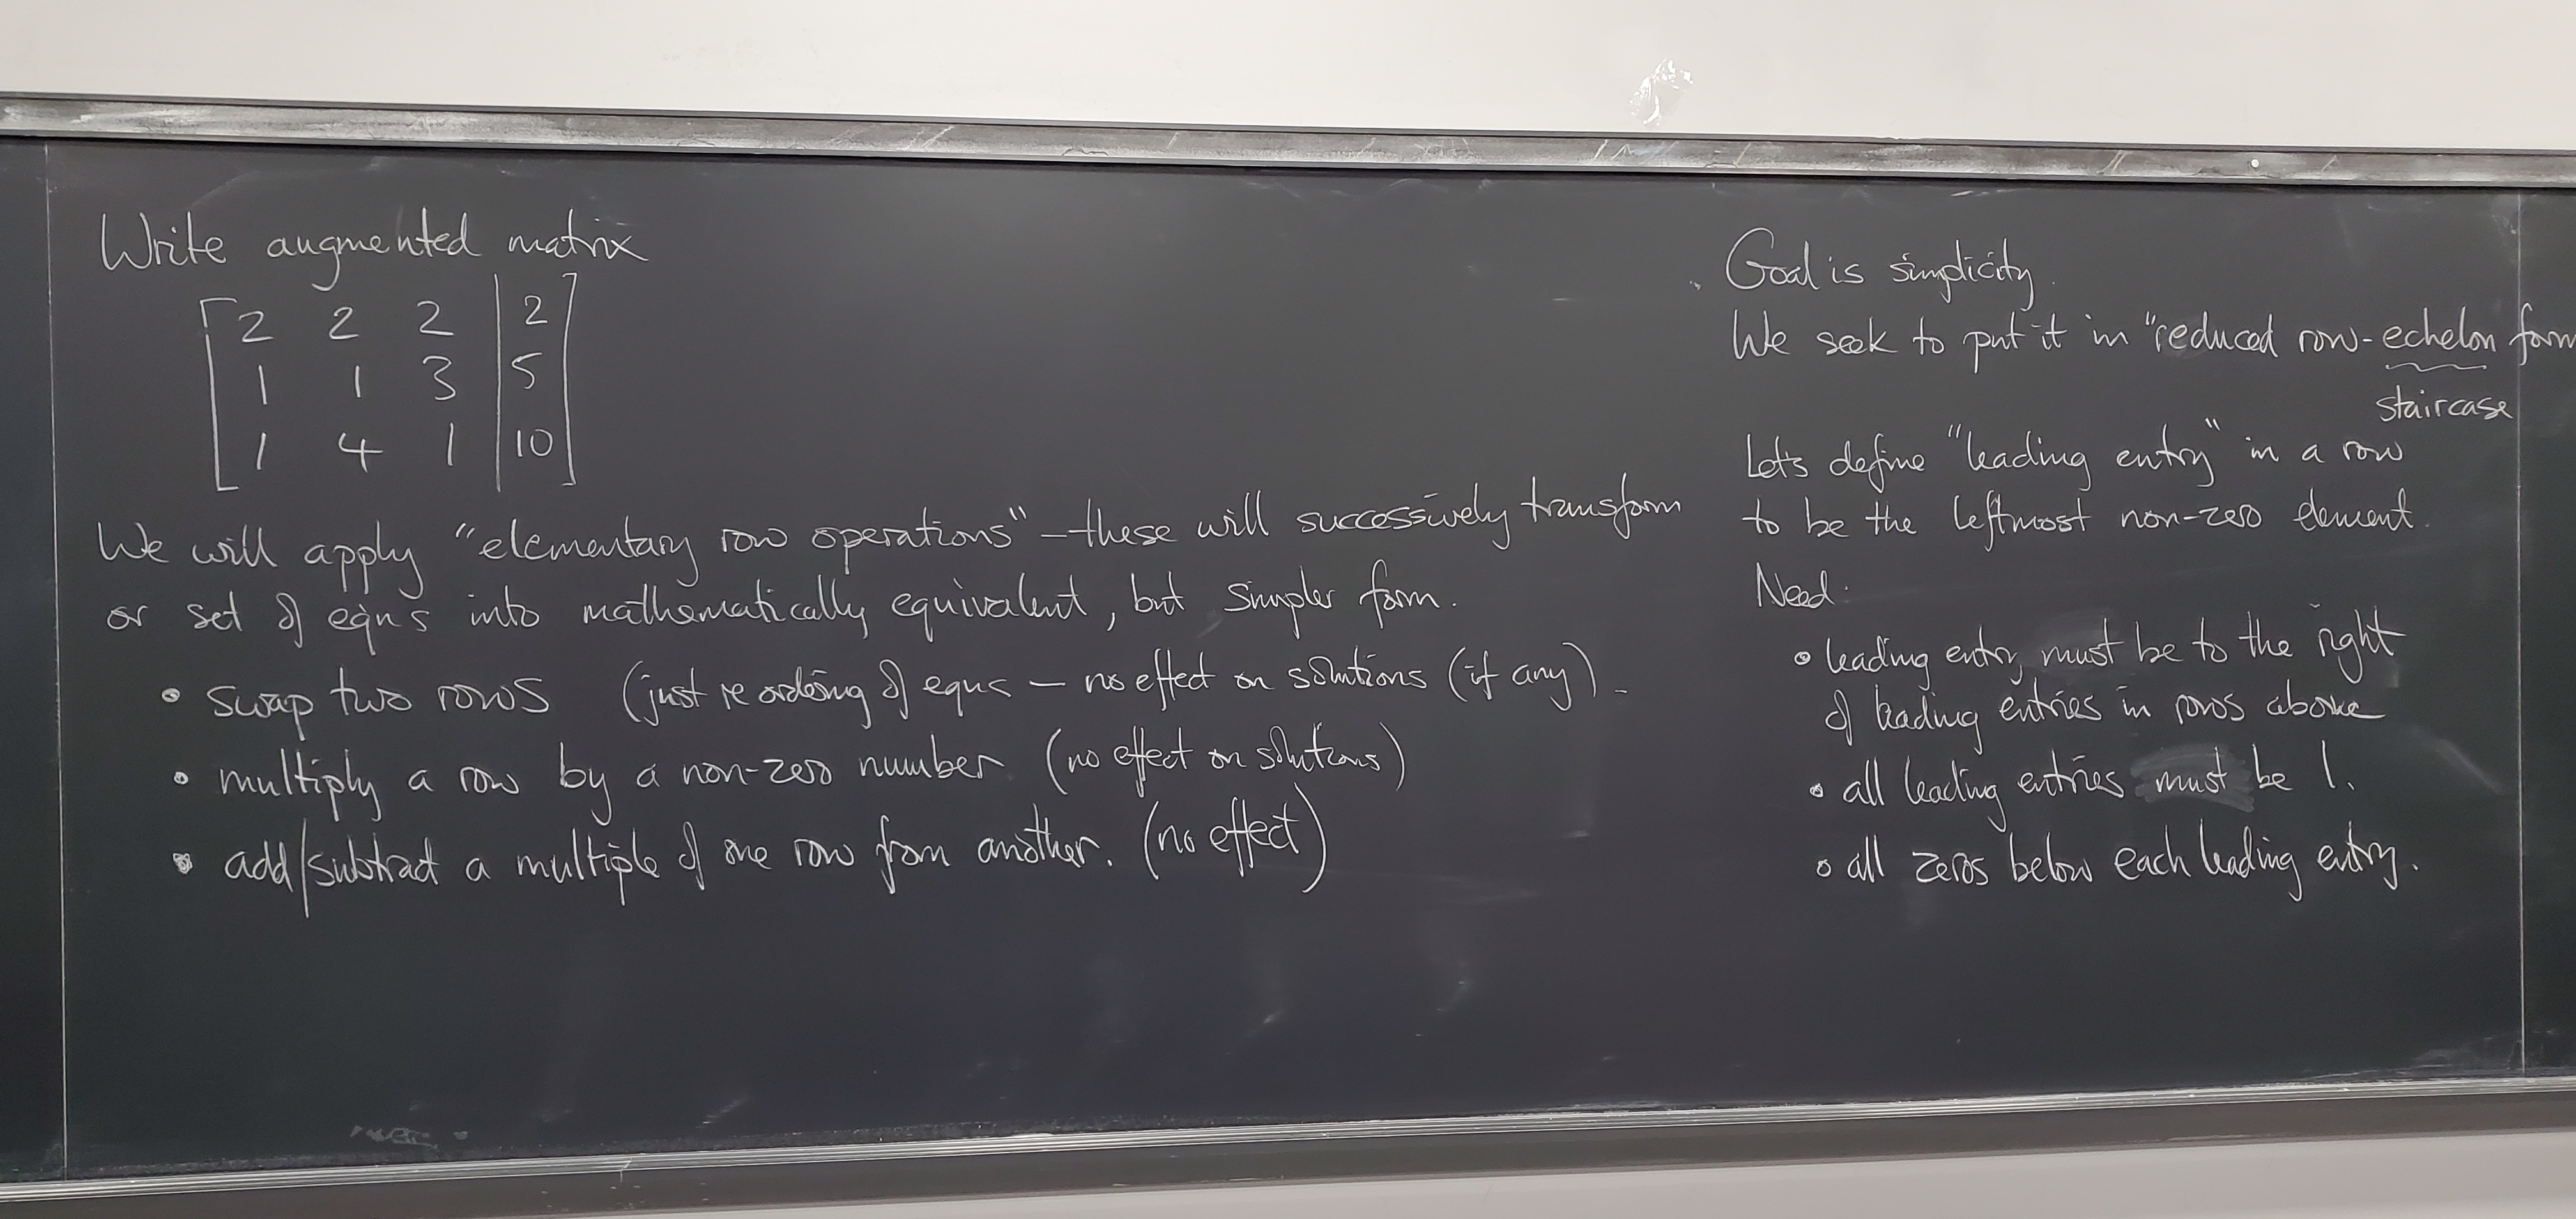 Write augmented matrix
2 2 2 | 2
1 1 3 | 5
1 4 1 | 10
We will apply "elementary row operations" – these will successively transform
or set of eqns into mathematically equivalent, but simpler form.
• swap two rows (just reordering of eqns – no effect on solutions (if any).
• multiply a row by a non-zero number (no effect on solutions)
• add/subtract a multiple of one row from another. (no effect)
Goal is simplicity.
We seek to put it in "reduced row-echelon form
staircase
Let's define "leading entry" in a row
to be the leftmost non-zero element.
Need:
• leading entry must be to the right
of leading entries in rows above
• all leading entries must be 1.
• all zeros below each leading entry.